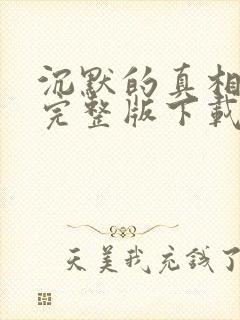 沉默的真相
完整版下载
天美我充钱了